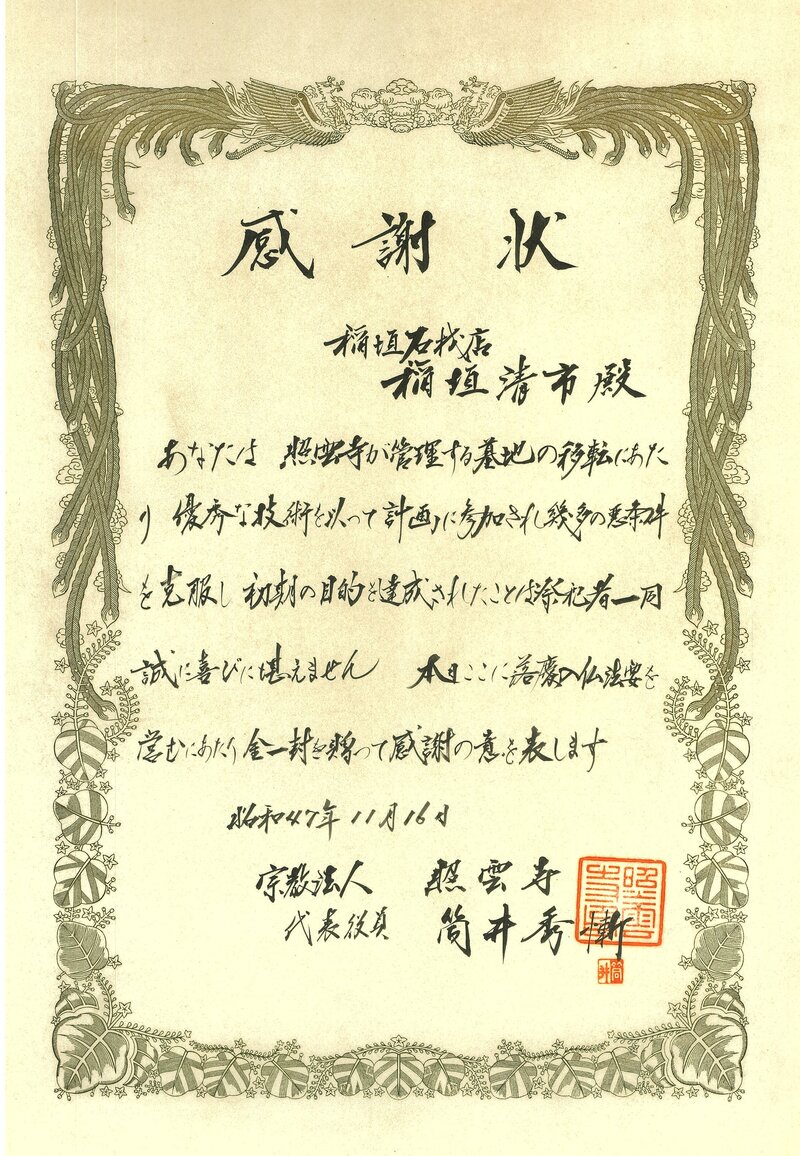 感謝状
稲垣石材店
稲垣清市殿
あなたは 照雲寺が管理する墓地の移転にあた
り 優秀な技術を以って計画に参加され幾多の悪条件
を克服し 初期の目的を達成されたことは祭祀者一同
誠に喜びに堪えません 本日ここに落慶入仏法要を
営むにあたり金一封を贈って感謝の意を表します
昭和47年11月16日
宗教法人 照雲寺
代表役員 筒井秀